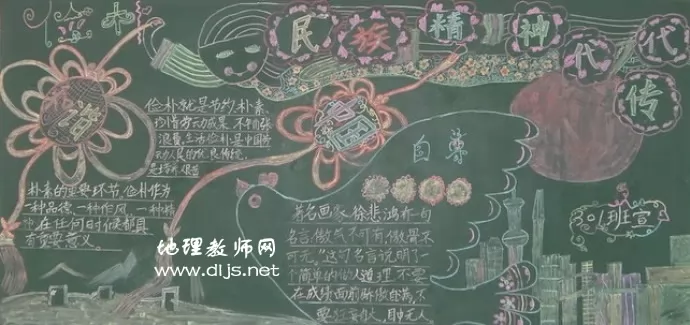 俭朴
民族精神代代传
和谐
俭朴就是节约,朴素,
珍惜劳动成果,不铺张
浪费,生活俭朴是中国劳
动人民的优良传统,
朴素的重要环节,俭朴作为
一种品德,一种作风,一种精
神,在任何时候都具
有重要意义。
自尊
著名画家徐悲鸿有句
名言:“傲气不可有,傲骨不
可无。”这句名言说明了一
个简单的做人道理,不要
在成绩面前骄傲自满,不
要狂妄自大,目中无人
班宣
地理教师网
www.dljs.net